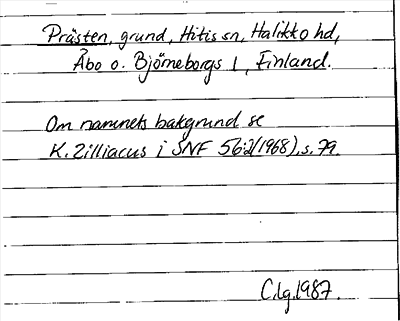 Prästen, grund, Hitis sn, Halikko hd,
Åbo o. Björneborgs l, Finland.
Om namnets bakgrund se
K. Zilliacus i SNF 56:2(1968), s. 79.
C.lg. 1987.